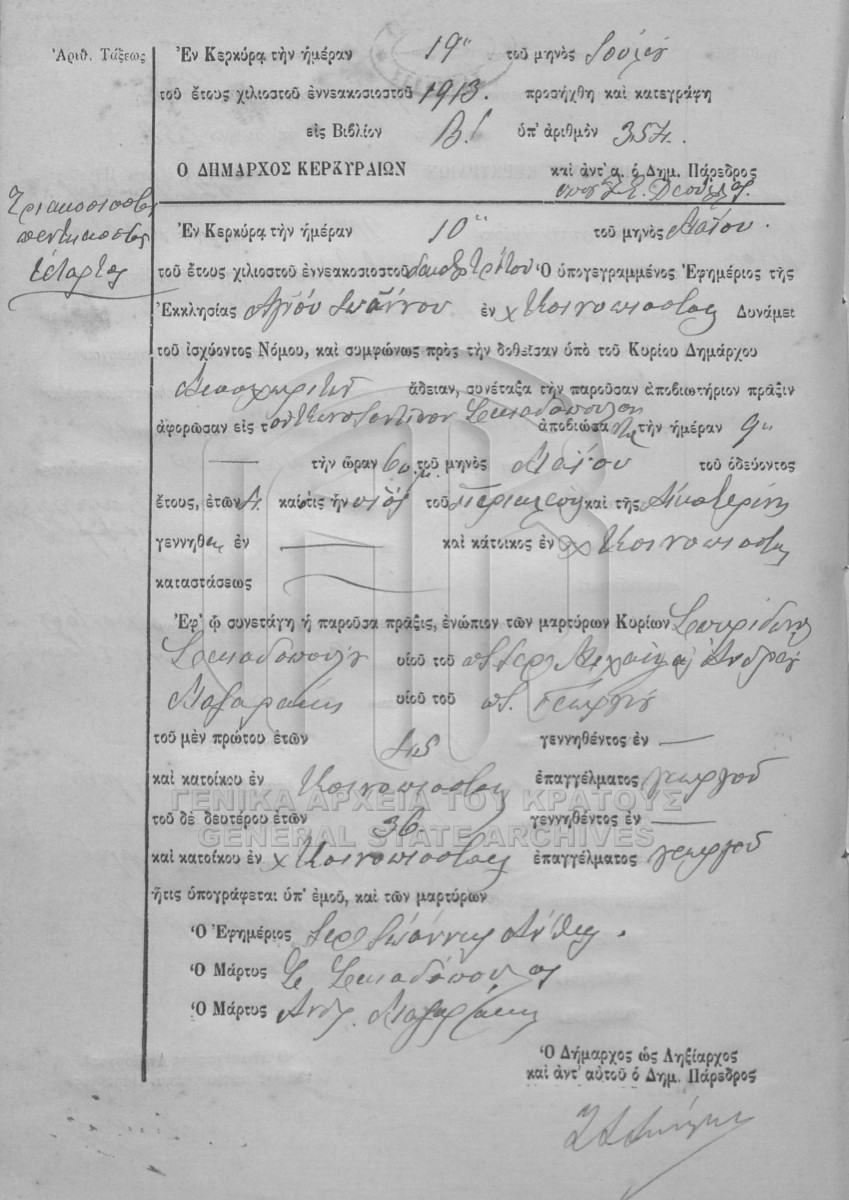 Ἀριθ. Τάξεως
Ἐν Κερκύρᾳ τὴν ἡμέραν 19 τοῦ μηνὸς Ἰουλίου
τοῦ ἔτους χιλιοστοῦ ἐννεακοσιοστοῦ 1913. προσήχθη καὶ κατεγράφη
εἰς Βιβλίον Β ὑπ' ἀριθμὸν 354.
Ο ΔΗΜΑΡΧΟΣ ΚΕΡΚΥΡΑΙΩΝ καὶ ἀντ' α. ὁ Δημ. Πάρεδρος
Τριακοσιοστὸς
πεντηκοστὸς
τέταρτος
Ἐν Κερκύρᾳ τὴν ἡμέραν 10 τοῦ μηνὸς Μαΐου.
τοῦ ἔτους χιλιοστοῦ ἐννεακοσιοστοῦ δεκάτου τρίτου Ὁ ὑπογεγραμμένος Ἐφημέριος τῆς
Ἐκκλησίας Ἁγίου Ἰωάννου ἐν χ Κοινοπιάσταις Δυνάμει
τοῦ ἰσχύοντος Νόμου, καὶ συμφώνως πρὸς τὴν δοθεῖσαν ὑπὸ τοῦ Κυρίου Δημάρχου
ἄδειαν, συνέταξα τὴν παροῦσαν ἀποβιωτήριον πρᾶξιν
ἀφορῶσαν εἰς τὸν Κωνσταντῖνον Σκιαδόπουλον ἀποβιώσαντα τὴν ἡμέραν 9
τὴν ὥραν 6 π.μ. τοῦ μηνὸς Μαΐου τοῦ ὁδεύοντος
ἔτους, ἐτῶν καὶ ὅστις ἦν υἱὸς τοῦ Περικλέους καὶ τῆς Αἰκατερίνης
γεννηθεὶς ἐν καὶ κάτοικος ἐν χ Κοινοπιάσταις
καταστάσεως
Ἐφ' ᾧ συνετάγη ἡ παροῦσα πρᾶξις, ἐνώπιον τῶν μαρτύρων Κυρίων Σπυρίδωνος
Σκιαδοπούλου υἱοῦ τοῦ Μιχαὴλ Ἀνδρέου
Μαζαράκη υἱοῦ τοῦ π. Γεωργίου
τοῦ μὲν πρώτου ἐτῶν 45 γεννηθέντος ἐν
καὶ κατοίκου ἐν Κοινοπιάσταις ἐπαγγέλματος γεωργοῦ
ΓΕΝΙΚΑ ΑΡΧΕΙΑ ΤΟΥ ΚΡΑΤΟΥΣ
τοῦ δὲ δευτέρου ἐτῶν 36 γεννηθέντος ἐν
GENERAL STATE ARCHIVES
καὶ κατοίκου ἐν χ Κοινοπιάσταις ἐπαγγέλματος γεωργοῦ
ἥτις ὑπογράφεται ὑπ' ἐμοῦ, καὶ τῶν μαρτύρων
Ὁ Ἐφημέριος Ἰερ Ἰωάννης
Ὁ Μάρτυς Σ Σκιαδόπουλος
Ὁ Μάρτυς Ἀνδρ. Μαζαράκης
Ὁ Δήμαρχος ὡς Ληξίαρχος
καὶ ἀντ' αὐτοῦ ὁ Δημ. Πάρεδρος